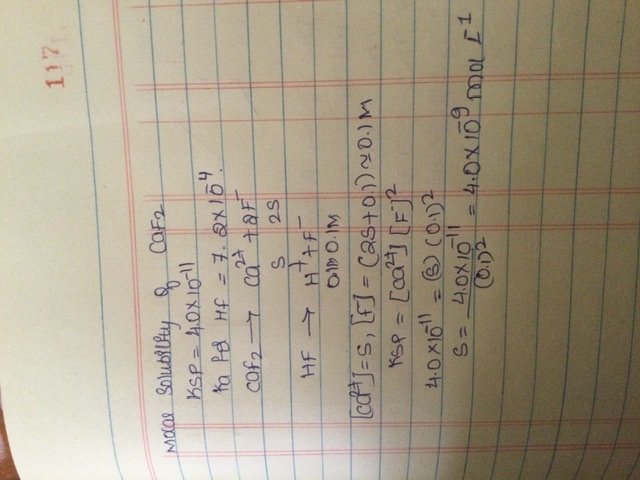 117
Molar Solubility of CaF2
KSP = 4.0X10^-11
Ka for Hf = 7.2X10^-4.
CaF2 → Ca^2+ + 2F^-
S 2S
HF → H^+ + F^-
0.1M
[Ca^2+] = S, [F^-] = (2S+0.1) ≈ 0.1M
KSP = [Ca^2+] [F^-]^2
4.0X10^-11 = (S) (0.1)^2
S = 4.0X10^-11 / (0.1)^2 = 4.0X10^-9 mol L^-1